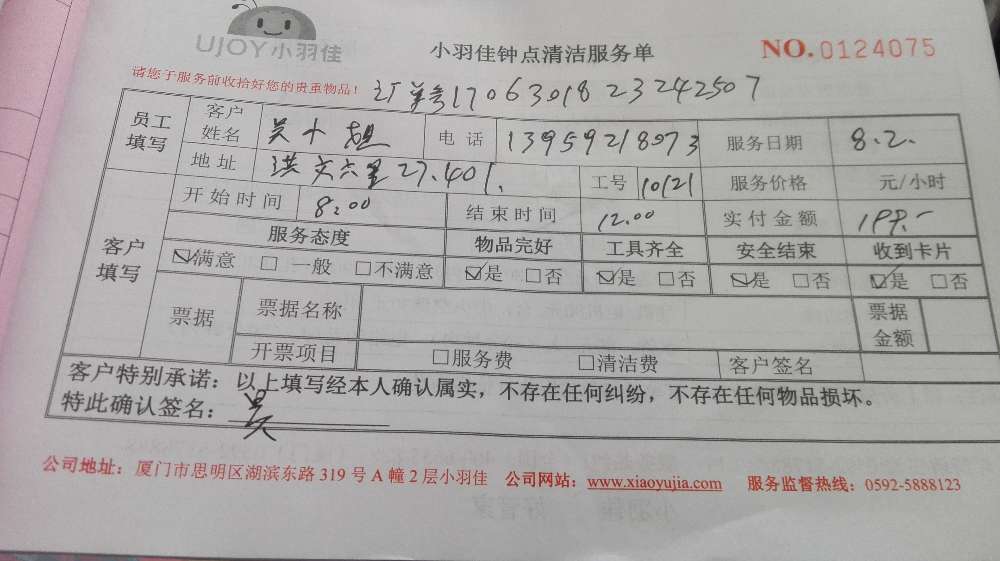 UJOY小羽佳
小羽佳钟点清洁服务单
NO.0124075
请您于服务前收拾好您的贵重物品!
订单号1706301823242507
员工填写
客户姓名 吴十 电话 13959218973 服务日期 8.2.
地址 洪文六里27.401. 工号 10121 服务价格 元/小时
客户填写
开始时间 8:00 结束时间 12.00 实付金额 199.-
服务态度 物品完好 工具齐全 安全结束 收到卡片
☑满意 □一般 □不满意 ☑是 □否 ☑是 □否 ☑是 □否 ☑是 □否
票据 票据名称 票据金额
开票项目 □服务费 □清洁费 客户签名
客户特别承诺：以上填写经本人确认属实，不存在任何纠纷，不存在任何物品损坏。
特此确认签名：吴
公司地址：厦门市思明区湖滨东路319号A幢2层小羽佳 公司网站：www.xiaoyujia.com 服务监督热线：0592-5888123